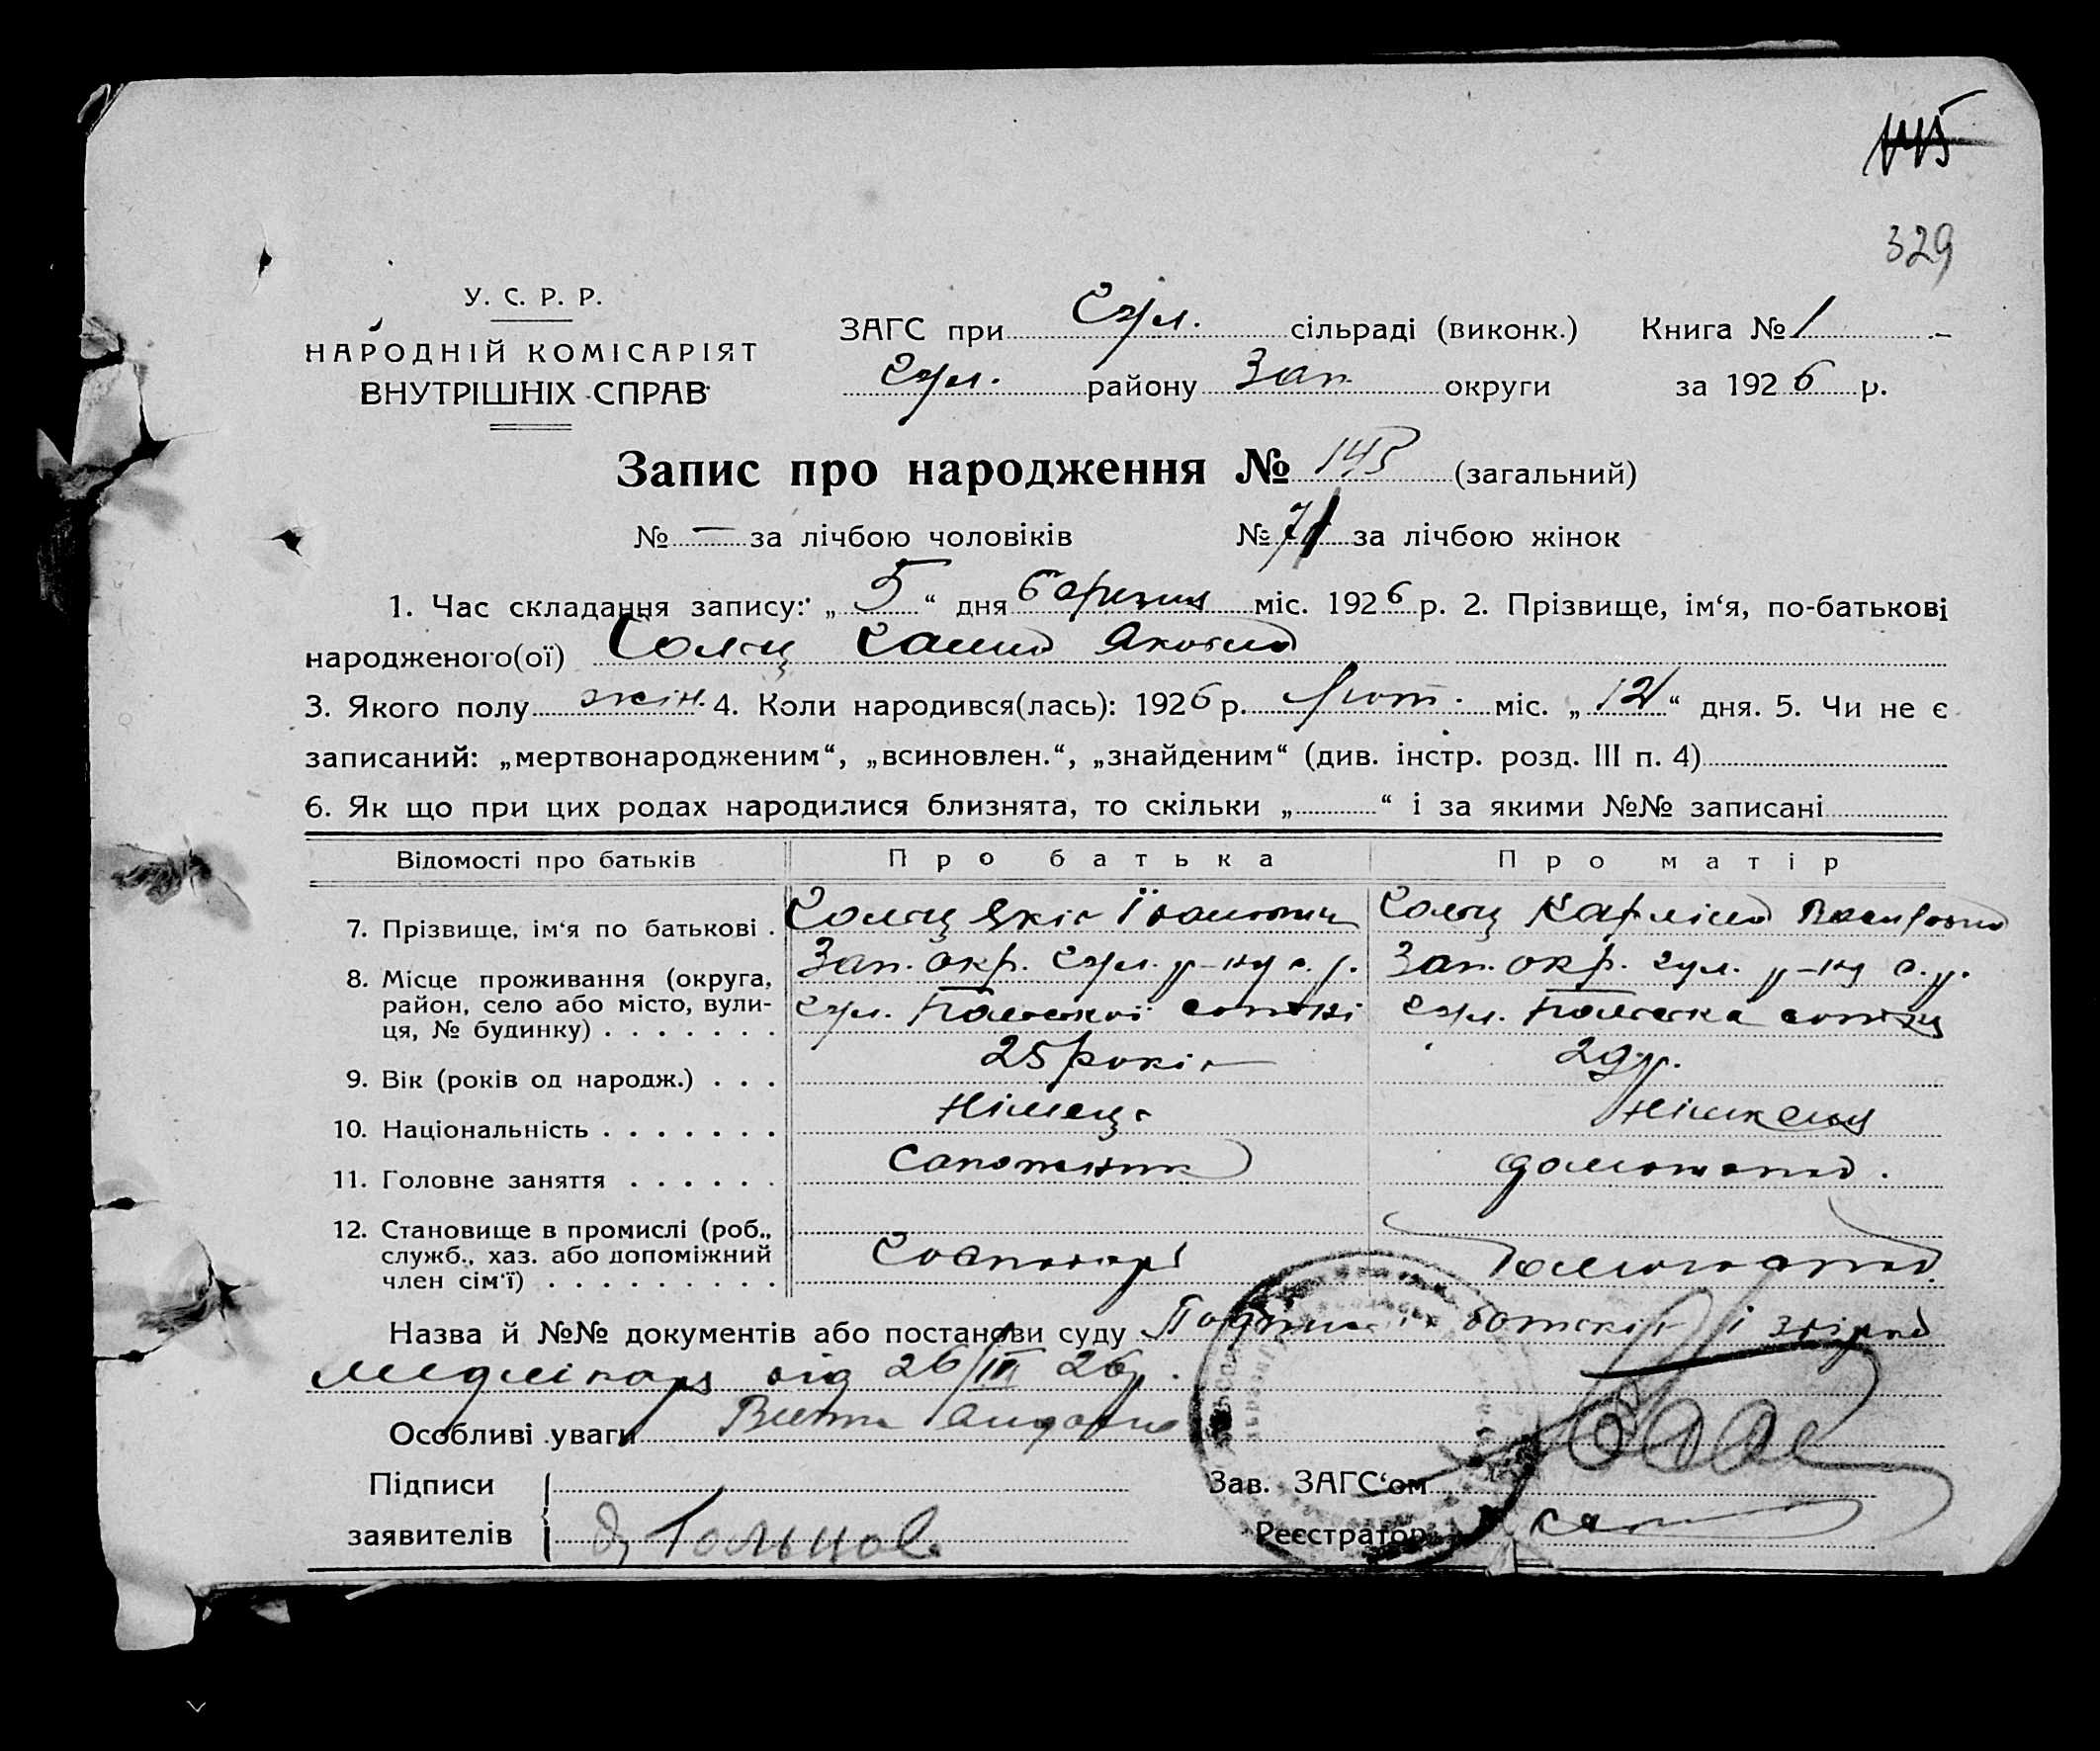 145
329
У. С. Р. Р.
НАРОДНІЙ КОМІСАРІЯТ
ВНУТРІШНІХ СПРАВ
ЗАГС при Гул. сільраді (виконк.) Книга № 1
Гул. району Зап. округи за 1926 р.
Запис про народження № 145 (загальний)
№ — за лічбою чоловіків № 71 за лічбою жінок
1. Час складання запису: „ 5 “ дня березня міс. 1926 р. 2. Прізвище, ім‘я, по-батькові
народженого(ої) Гольц Ганна Яковна
3. Якого полу жін. 4. Коли народився(лась): 1926 р. лют. міс. „ 12 “ дня. 5. Чи не є
записаний: „мертвонародженим“, „всиновлен.“, „знайденим“ (див. інстр. розд. III п. 4)
6. Як що при цих родах народилися близнята, то скільки „ “ і за якими №№ записані
Відомості про батьків Про батька Про матір
7. Прізвище, ім‘я по батькові . Гольц Яків Іванович Гольц Кароліна
8. Місце проживання (округа, Зап. окр. Гул. р-ну с. р. Зап. окр. Гул. р-ну с. р.
район, село або місто, вули- Гул. сотні Гул. сотня
ця, № будинку)
9. Вік (років од народж.) . . . 25 років 29 р.
10. Національність німець німкеня
11. Головне заняття сапожник домогосп.
12. Становище в промислі (роб.,
служб., хаз. або допоміжний Господарь домогосп.
член сім‘ї)
Назва й №№ документів або постанови суду батьків і
від 26/III 26 р.
Особливі уваги
Підписи Зав. ЗАГС‘ом
заявителів Я Гольцов Реєстратор